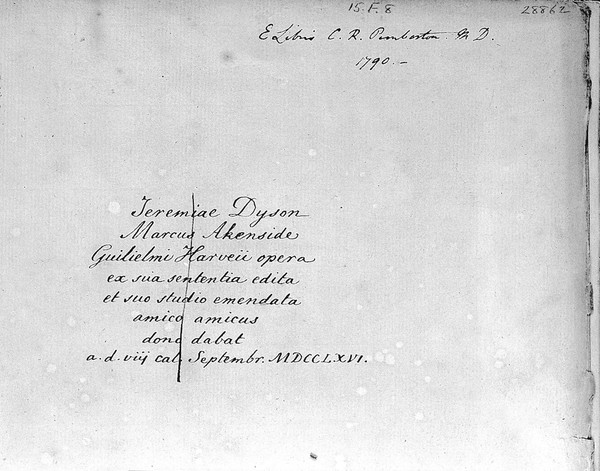 15.F.8
28862
E Libris C. R. Pemberton M D.
1790.-
Jeremiae Dyson
Marcus Akenside
Guilielmi Harveii opera
ex sua sententia edita
et suo studio emendata
amico amicus
dono dabat
a. d. viij cal. Septembr. MDCCLXVI.